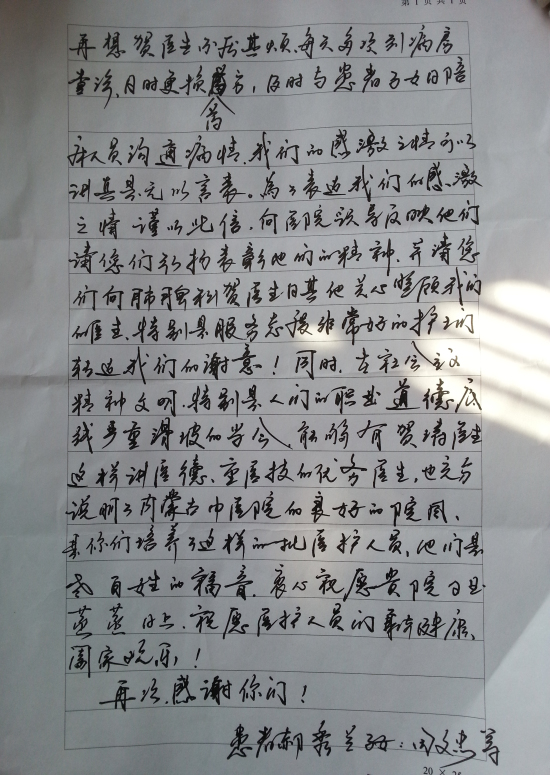 第1页共1页
再想贺医生不厌其烦,每天多次到病房
查诊,及时更换药方,及时与患者子女日陪
床人员沟通病情,我们的感激之情可以
讲真是无以言表。为了表达我们的感激
之情谨以此信,向医院领导反映他们
请您们弘扬表彰他们的精神,并请您
们向肺脾科贺医生日其他关心照顾我们
的医生,特别是服务态度非常好的护士们
转达我们的谢意!同时,在社会主义
精神文明,特别是人们的职业道德底
线严重滑坡的当今,能够有贺靖医生
这样讲医德、重医技的优务医生,也充分
说明了内蒙古中医院的良好的院风,
是你们培养了这样的一批医护人员,他们是
老百姓的福音。衷心祝愿贵院日日
蒸蒸日上,祝愿医护人员们身体健康,
阖家欢乐!
再次感谢你们!
患者 秀兰 子女:周文忠等
20×25